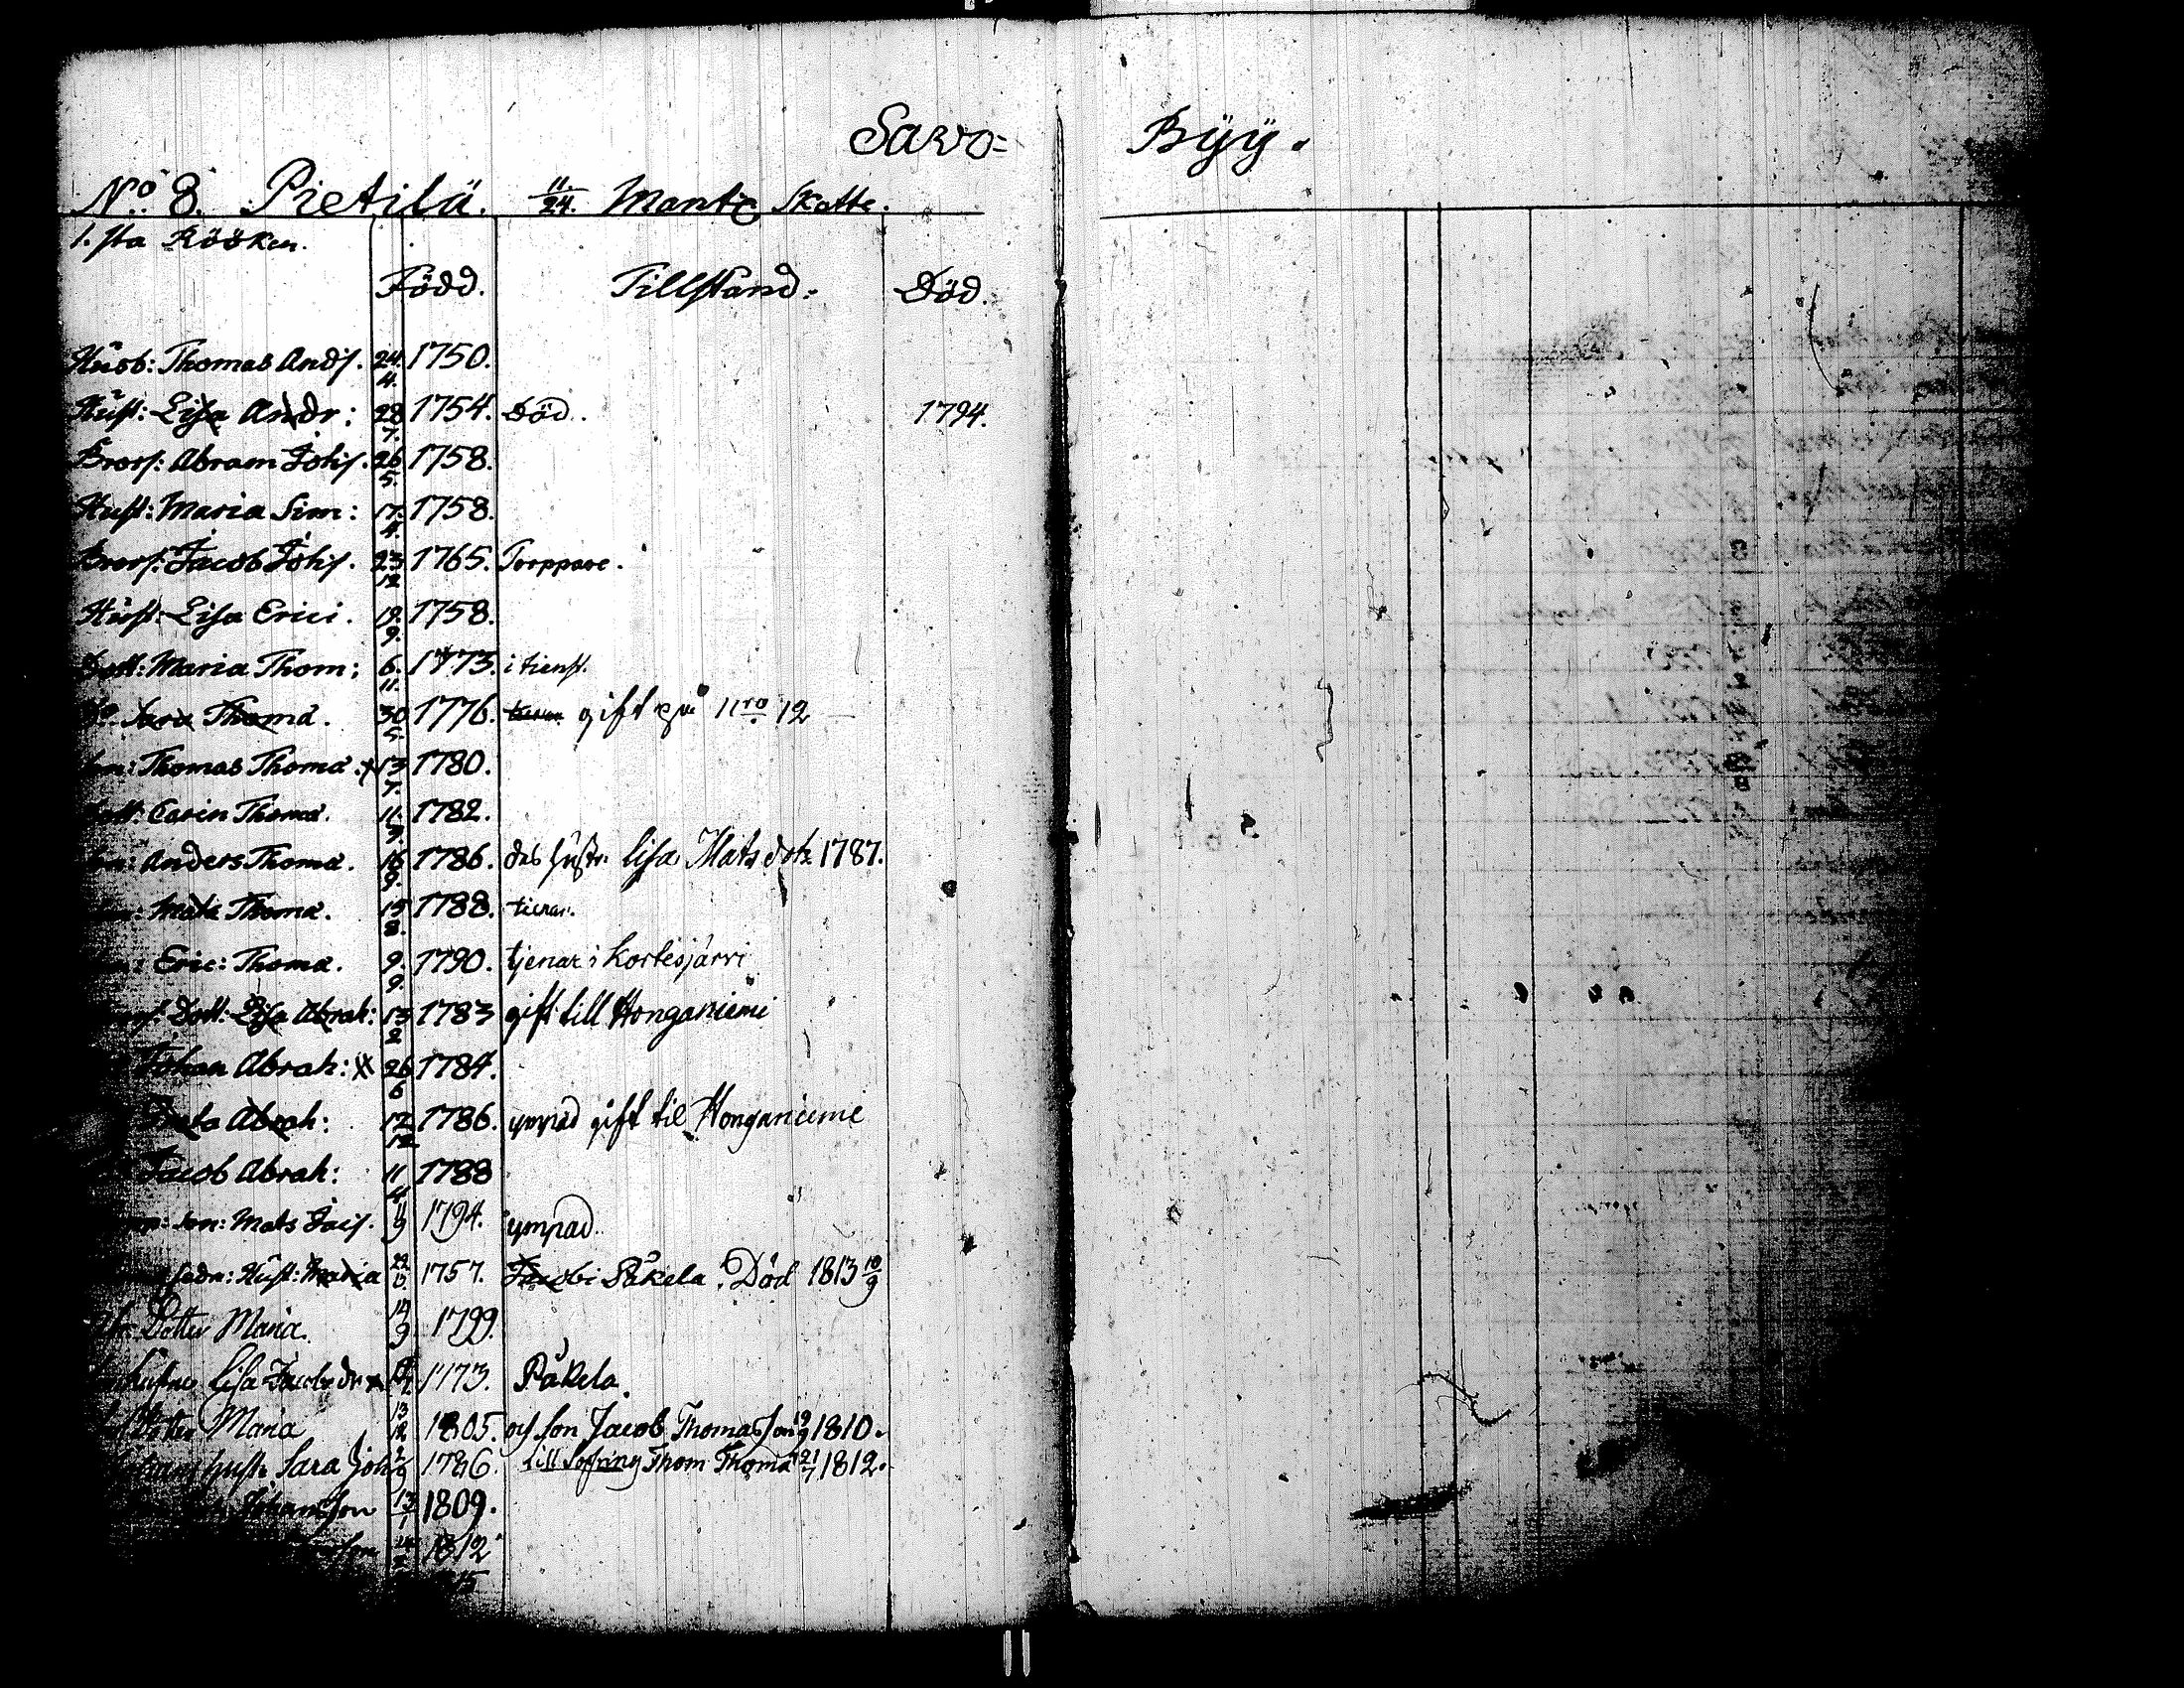 Savo= Byy.
No. 8. Pietilä. 11/24. Mantl Skatte.
1.sta Rööken.
Född. Tillstånd: Död.
Husb: Thomas Andſ. 24/4. 1750.
Hust: Lisa Andr: 28/7. 1754. Död. 1794.
Brorſ: Abram Johſ. 26/5. 1758.
Hust: Maria Sim: 17/4. 1758.
Brorſ: Jacob Johſ. 23/12 1765. Torppare.
Hust: Lisa Erici. 19/9. 1758.
Dott: Maria Thom: 6/11. 1773. i tienst.
Do. Sara Thomæ. 30/5. 1776. gift på No 12
Thomas Thomæ. x 13/7. 1780.
Dott: Carin Thomæ. 11/7. 1782.
Anders Thomæ. 16/9. 1786. das hustr. Lisa Mats dotr 1787.
Mats Thomæ. 15/8. 1788. tienar.
Eric: Thomæ. 9/9. 1790. tjenar i Kortesjärvi
Dott: Lisa Abrah: 13/2 1783 gift till Honganiemi
Johan Abrah: x 26/6 1784.
Greta Abrah: 12/12 1786. ympad gift til Honganiemi
Jacob Abrah: 11/4 1788
son: Mats Jacſ. 11/9 1794. ympad.
Hust: Maria 1757. Jacobi Påkela. Död 1813 10/9
Dotter Maria. 14/9 1799.
hustru Lisa Jacobs dr x 1773. Påkela.
Dotter Maria 13/12 1805. och son Jacob Thomasson 19/9 1810.
hustr. Sara Joh: 2/9 1786. Thom Thomæ 21/7 1812.
Johansson 13/1 1809.
son 1812